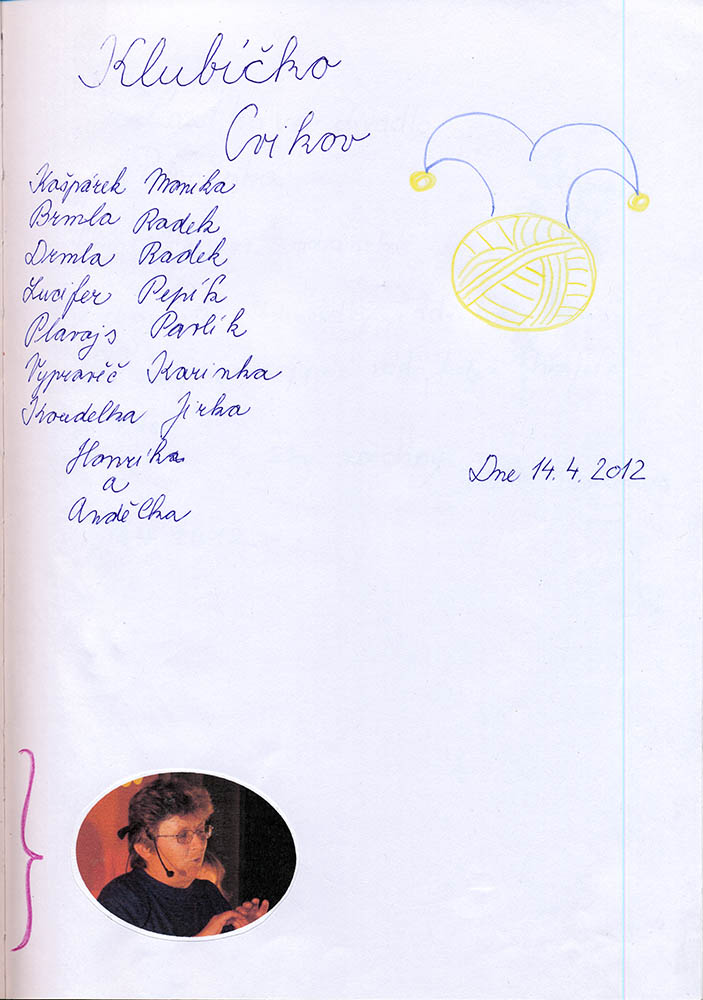 Klubíčko
Cvikov
Kašpárek Monika
Brmla Radek
Drmla Radek
Lucifer Pepík
Plavajs Pavlík
Vypravěč Karinka
Koudelka Jirka
a
Andělka
Dne 14.4.2012